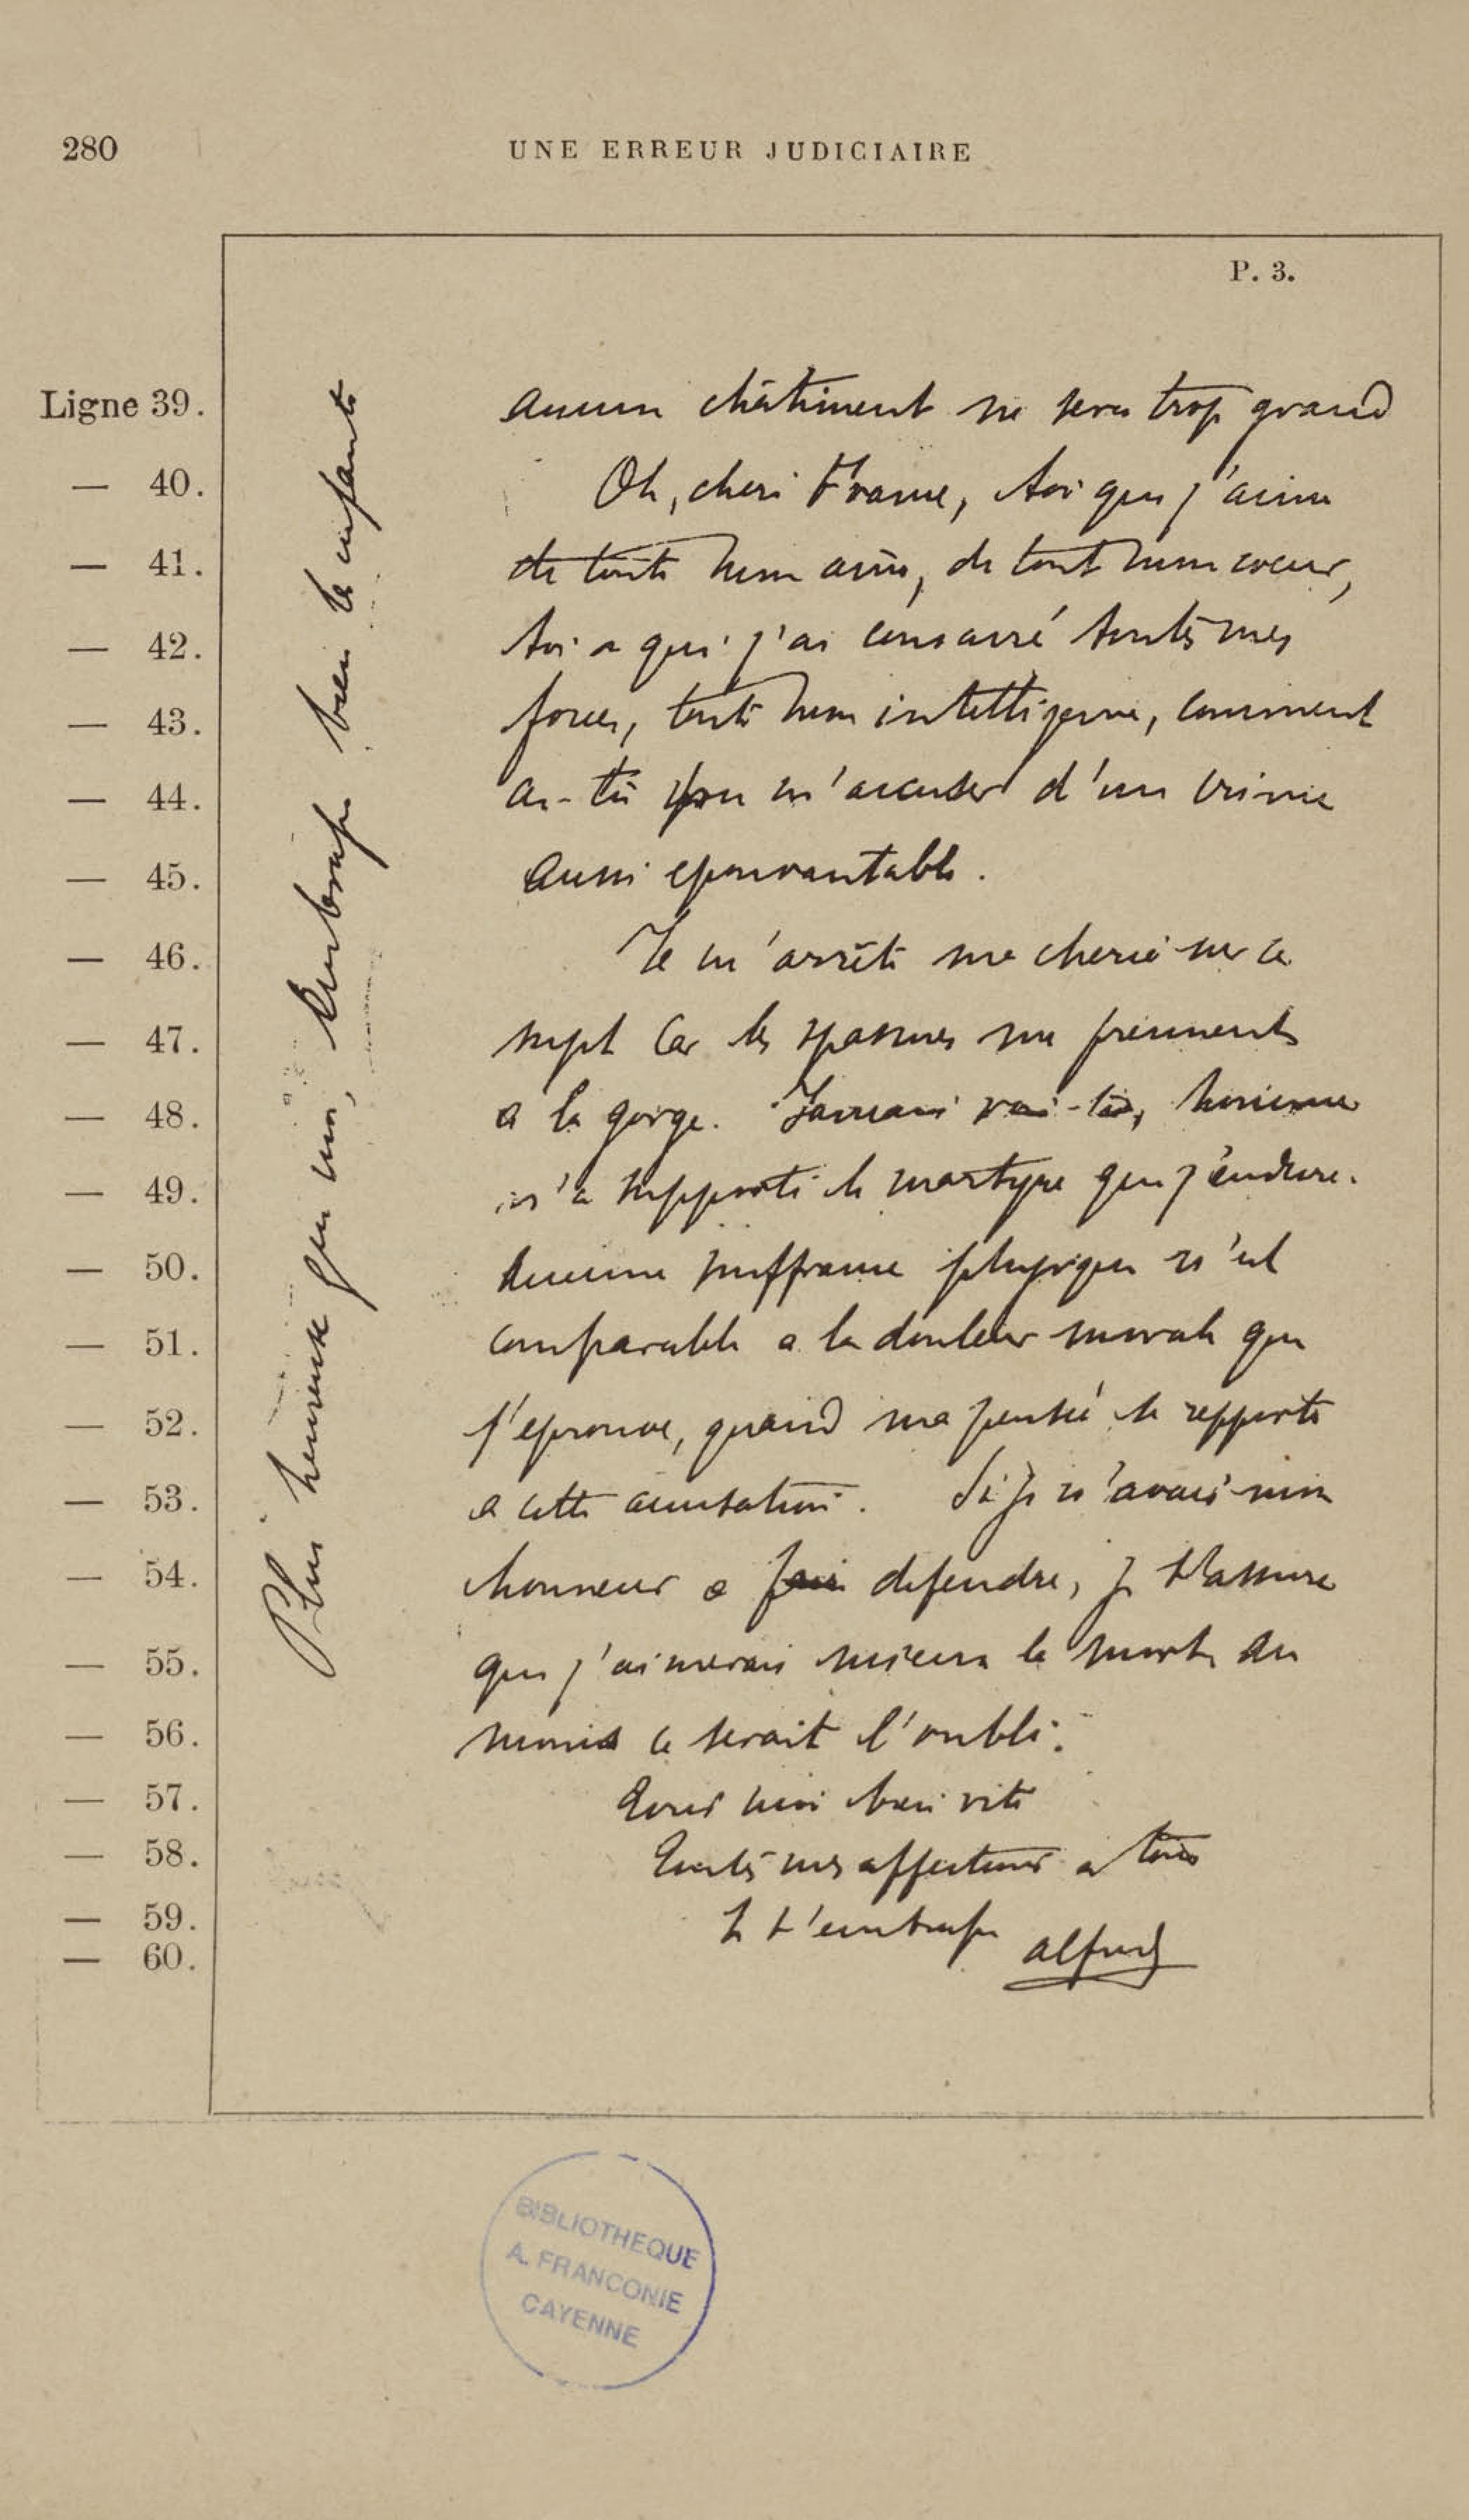 280
UNE ERREUR JUDICIAIRE
P. 3.
Ligne 39. aucun châtiment ne sera trop grand
— 40. Oh, cheri France, toi que j'aime
— 41. de toute mon ame, de tout mon coeur,
— 42. toi a qui j'ai consacré toutes mes
— 43. forces, toute mon intelligence, comment
— 44. as-tu pu m'accuser d'un crime
— 45. aussi epouvantable.
— 46. Je m'arrête ma cherie sur ce
— 47. sujet car les spasmes me prennent
— 48. a la gorge. Jamais vois-tu, homme
— 49. n'a supporté le martyre que j'endure.
— 50. Aucune souffrance physique n'est
— 51. comparable a la douleur morale que
— 52. j'eprouve, quand ma pensée se repporte
— 53. a cette accusation. Si je n'avais mon
— 54. honneur a defendre, je t'assure
— 55. que j'aimerais mieux la mort au
— 56. moins ce serait l'oubli.
— 57. Ecris moi bien vite
— 58. Toutes mes affections a tous
— 59. Je t'embrasse
— 60. Alfred
Plus heureuse que moi, embrasse bien les enfants
BIBLIOTHEQUE
A. FRANCONIE
CAYENNE